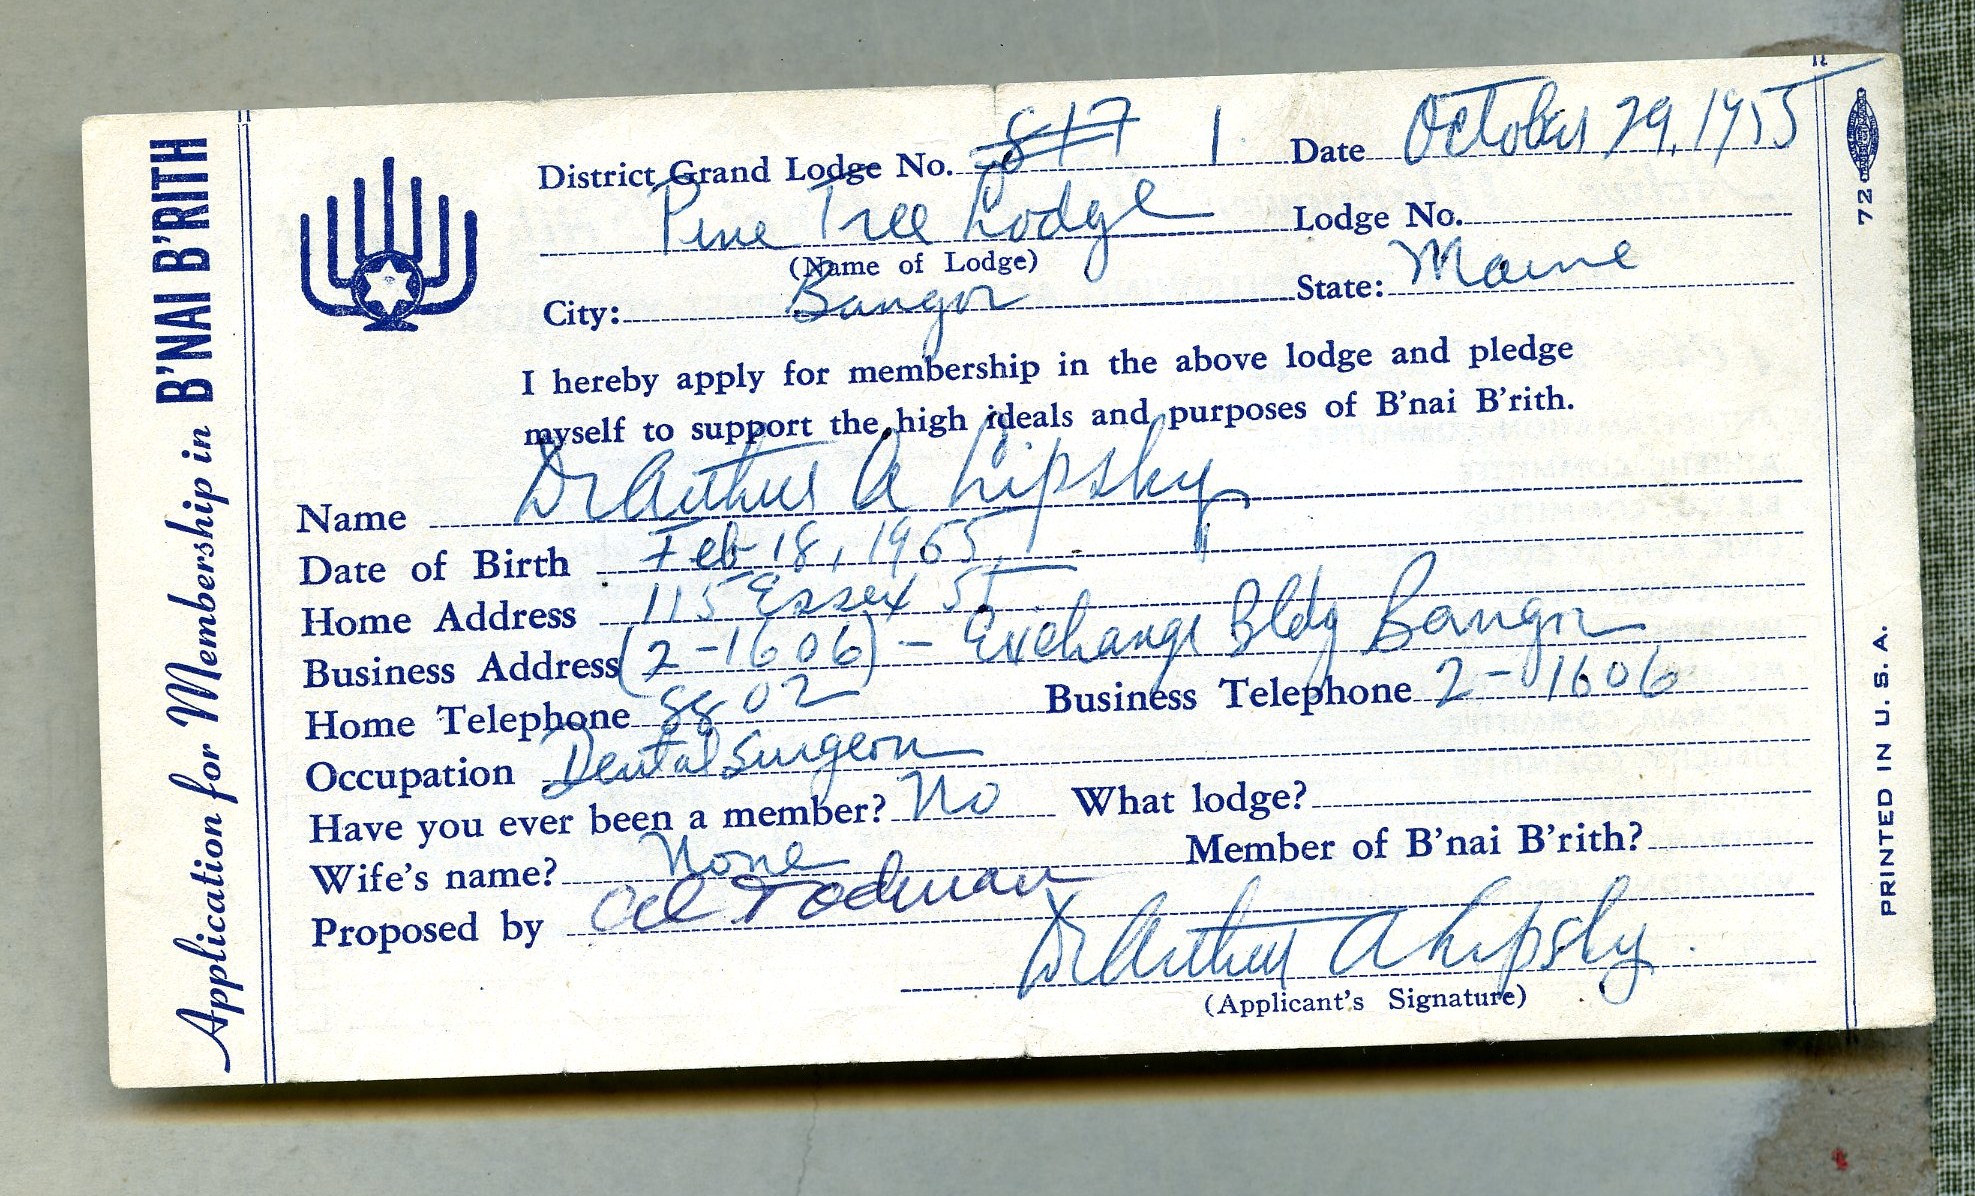 Application for Membership in B'NAI B'RITH
District Grand Lodge No. 817 1 Date October 29, 1955
Pine Tree Lodge Lodge No.
(Name of Lodge)
City: Bangor State: Maine
I hereby apply for membership in the above lodge and pledge
myself to support the high ideals and purposes of B'nai B'rith.
Name Dr Arthur A Lipsky
Date of Birth Feb 18, 1965
Home Address 115 Essex St
Business Address (2-1606) - Exchange Bldg Bangor
Home Telephone 8802 Business Telephone 2-1606
Occupation Dental Surgeon
Have you ever been a member? No What lodge?
Wife's name? None Member of B'nai B'rith?
Proposed by Todman
Dr Arthur A Lipsky
(Applicant's Signature)
72
PRINTED IN U. S. A.